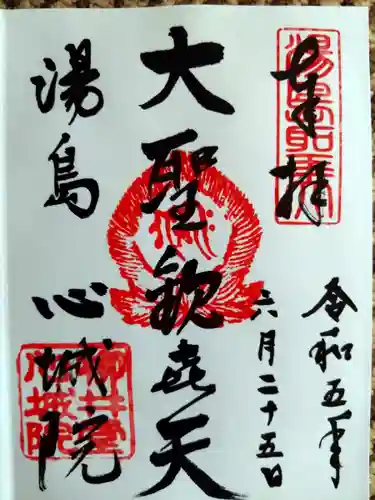 奉拝
湯島聖天
令和五年
六月二十五日
大聖歓喜天
湯島 心城院
柳井堂
心城院